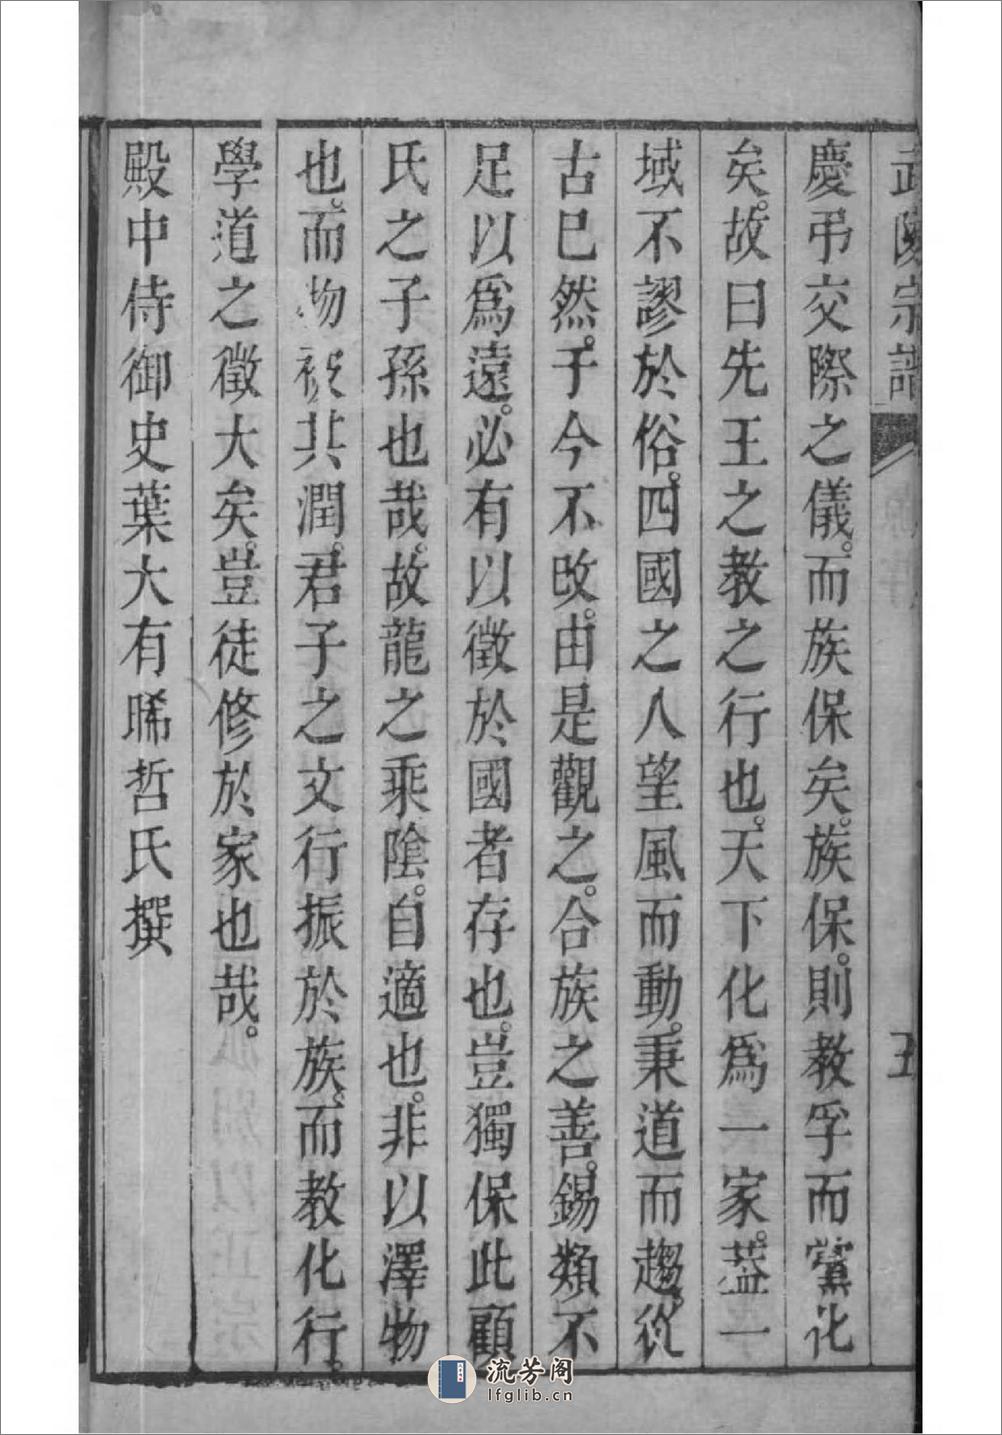 武陵宗譜 五
慶弔交際之儀。而族保矣。族保。則教孚而黨化
矣。故曰先王之教之行也。天下化爲一家。葢一
域不謬於俗。四國之人望風而動。秉道而趨。從
古已然。于今不改。由是觀之。合族之善。錫類不
足以爲遠。必有以徵於國者存也。豈獨保此顧
氏之子孫也哉。故龍之乘陰。自適也。非以澤物
也。而物被其潤。君子之文行振於族。而教化行。
學道之徵大矣。豈徒修於家也哉。
殿中侍御史葉大有晞哲氏撰
流芳阁
lfglib.cn